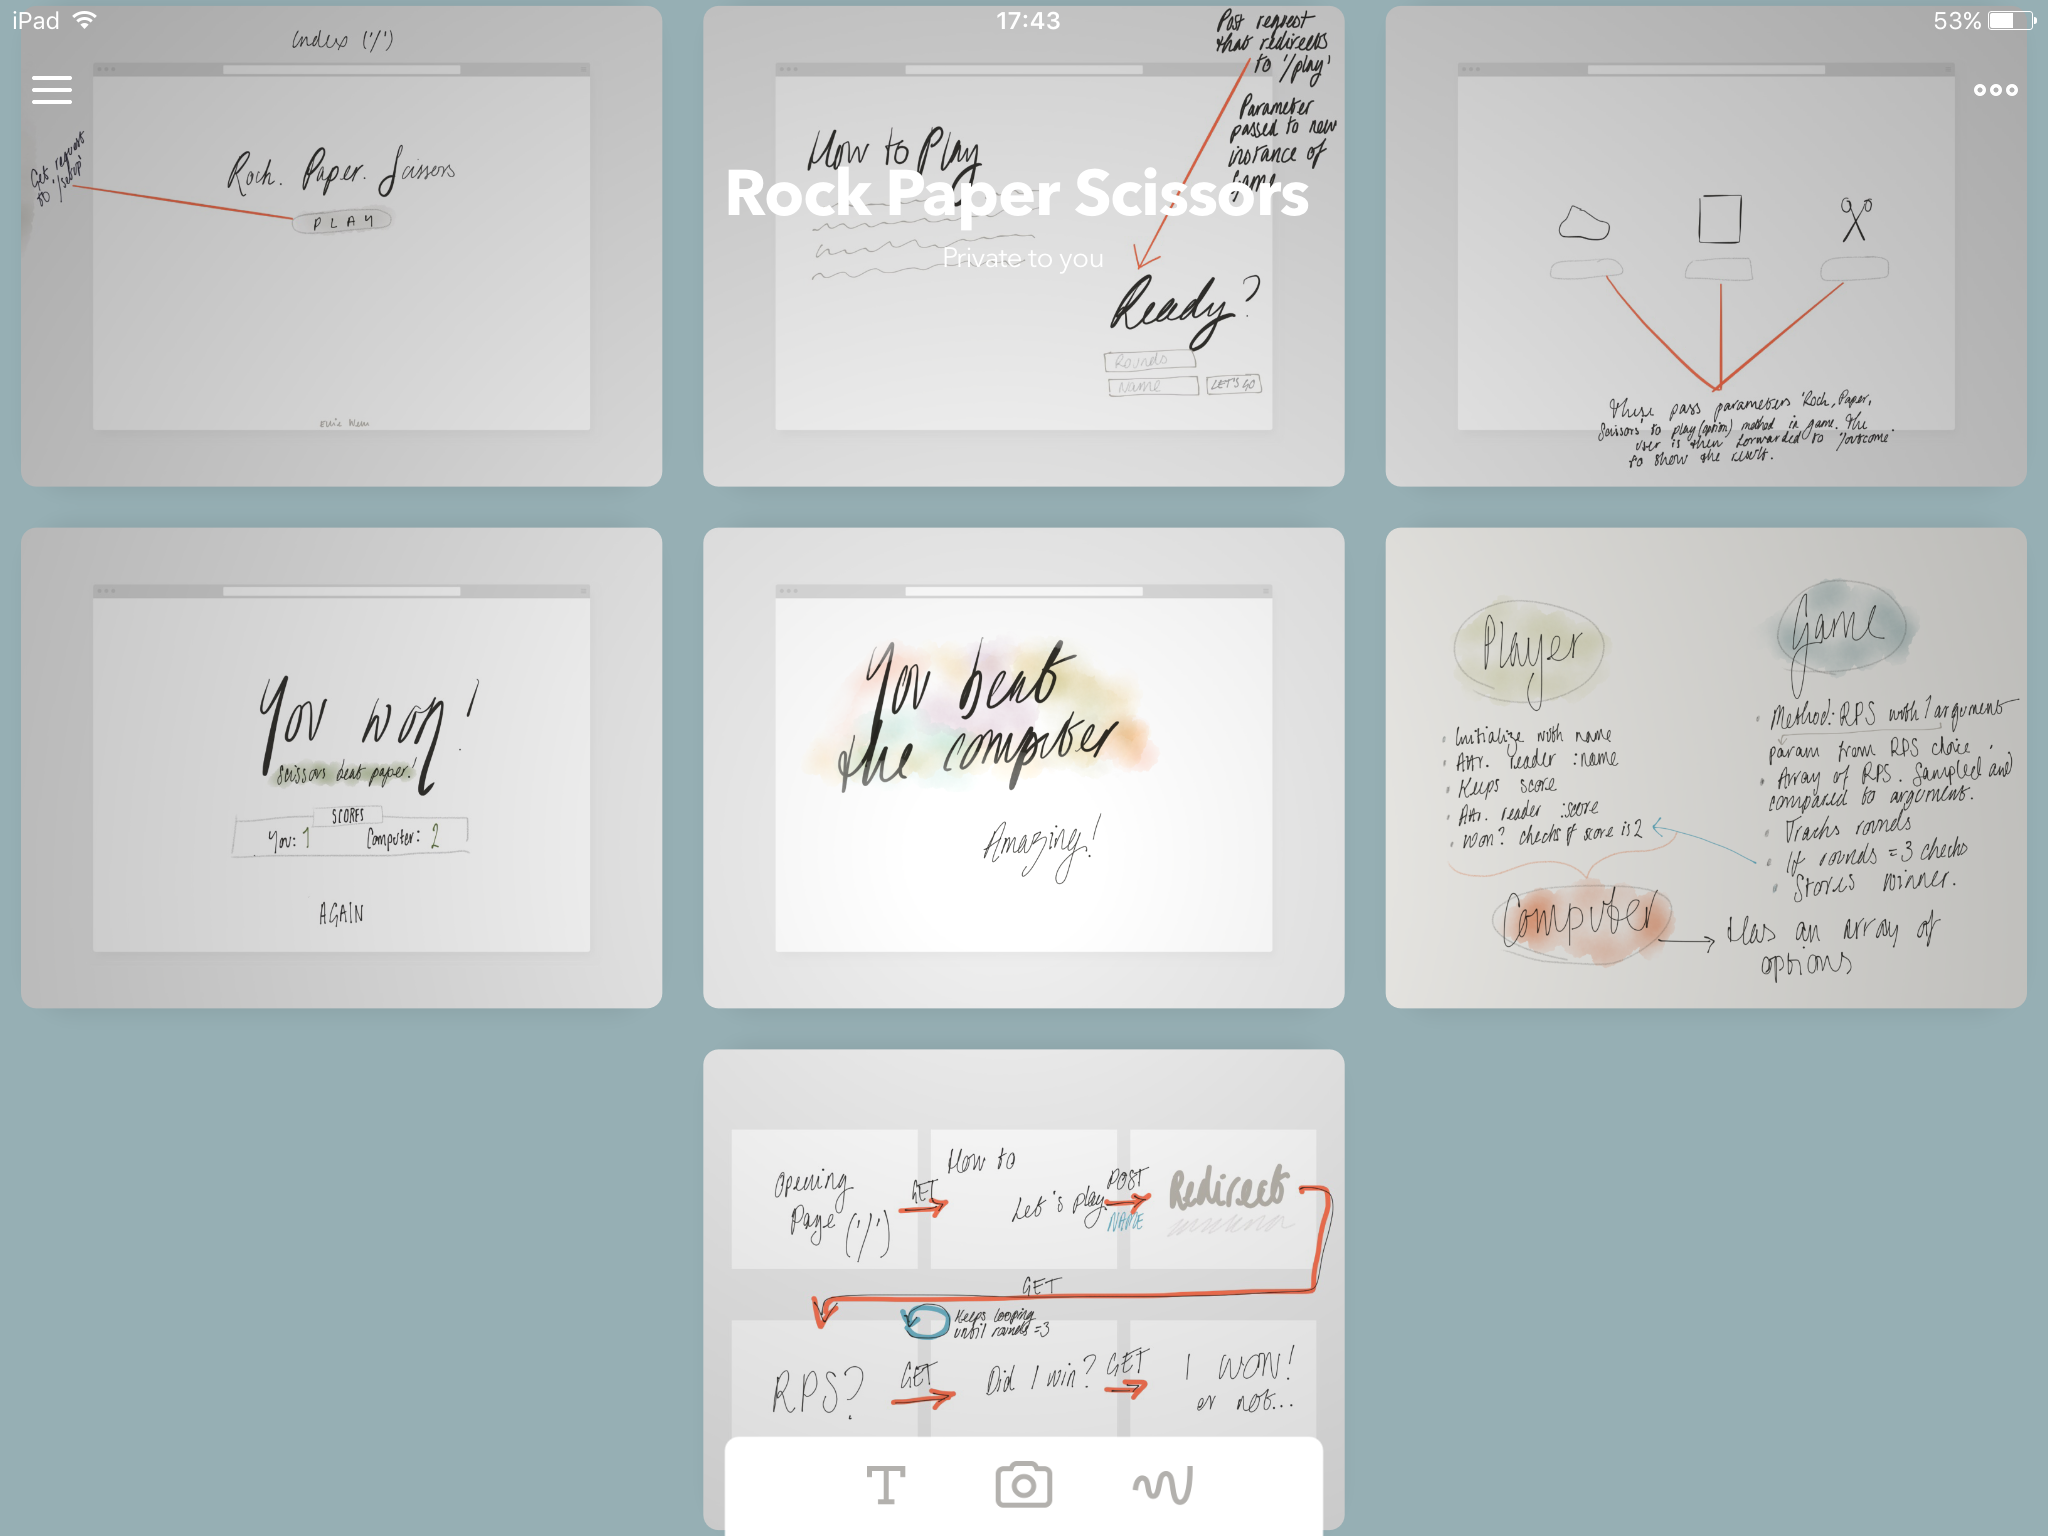 iPad
17:43
53%
Rock Paper Scissors
Private to you
Index ('/')
Get request
to '/setup'
Rock. Paper. Scissors
PLAY
Post request
that redirects
to '/play'
Parameter
passed to new
instance of
game
How to Play
Ready?
Rounds
Name
LET'S GO
These pass parameters 'Rock, Paper,
Scissors' to play(option) method in game. The
user is then forwarded to '/outcome'
to show the result.
You won!
Scissors beat paper!
SCORES
You: 1 Computer: 2
AGAIN
You beat
the computer
Amazing!
Player
Initialize with name
Attr. reader :name
Keeps score
Attr. reader :score
Won? checks if score is 2
Computer
Has an array of
options
Game
Method: RPS with 1 argument
param from RPS choice.
Array of RPS. Sampled and
compared to argument.
Tracks rounds
If rounds = 3 checks
Stores winner.
Opening
Page ('/')
GET
How to
Let's play
POST
NAME
Redirect
GET
Keeps looping
until rounds =3
RPS?
GET
Did I win?
GET
I WON!
or not...
T